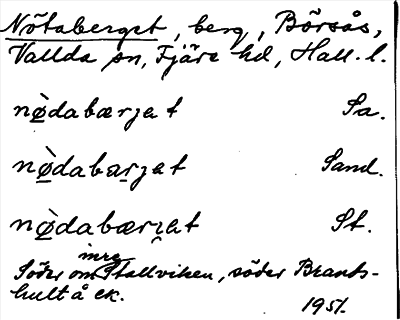 Nötaberget, berg, Börsås,
Vallda sn, Fjäre hd, Hall. l.
nø̀dabærjet Sa.
nø̀dabærjet Sand.
nø̀dabærjet St.
Söder om inre Stallviken, söder Brants-
hult å ek.
1951.